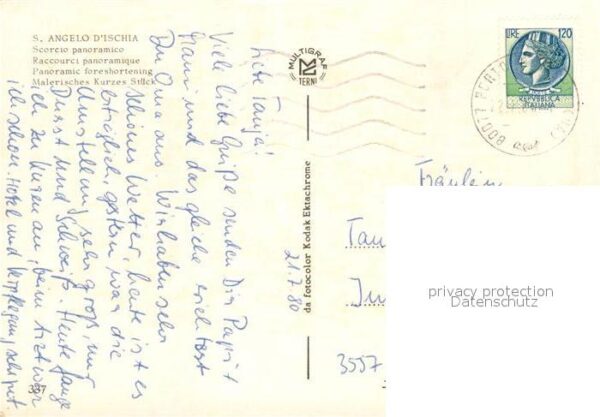 S. ANGELO D'ISCHIA
Scorcio panoramico
Raccourci panoramique
Panoramic foreshortening
Malerisches Kurzes Stück
Liebe Tanja!
Viele liebe Grüße senden Dir Papi +
Mami und das gleiche richtest
Du Oma aus. Wir haben sehr
schönes Wetter, heute ist es
erträglich, gestern war die
Umstellung sehr groß, nur
Durst und Schweiß. Heute fange
ich zu kuren an, beim Arzt war
ich schon. Hotel und Verpflegung sehr gut
337
MULTIGRAF
TERNI
da fotocolor Kodak Ektachrome
21.7.80
LIRE 120
REPUBBLICA
ITALIANA
80077
Fräulein
Tan
3557
privacy protection
Datenschutz